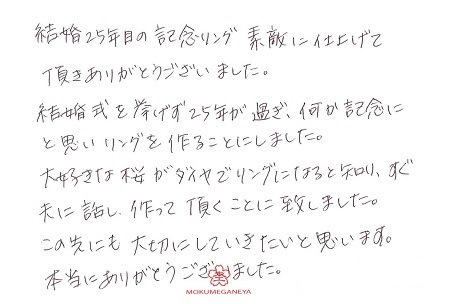 結婚25年目の記念リング 素敵に仕上げて
頂きありがとうございました。
結婚式を挙げず25年が過ぎ、何か記念に
と思いリングを作ることにしました。
大好きな桜がダイヤでリングになると知り、すぐ
夫に話し、作って頂くことに致しました。
この先にも大切にしていきたいと思います。
本当にありがとうございました。
MOKUMEGANEYA